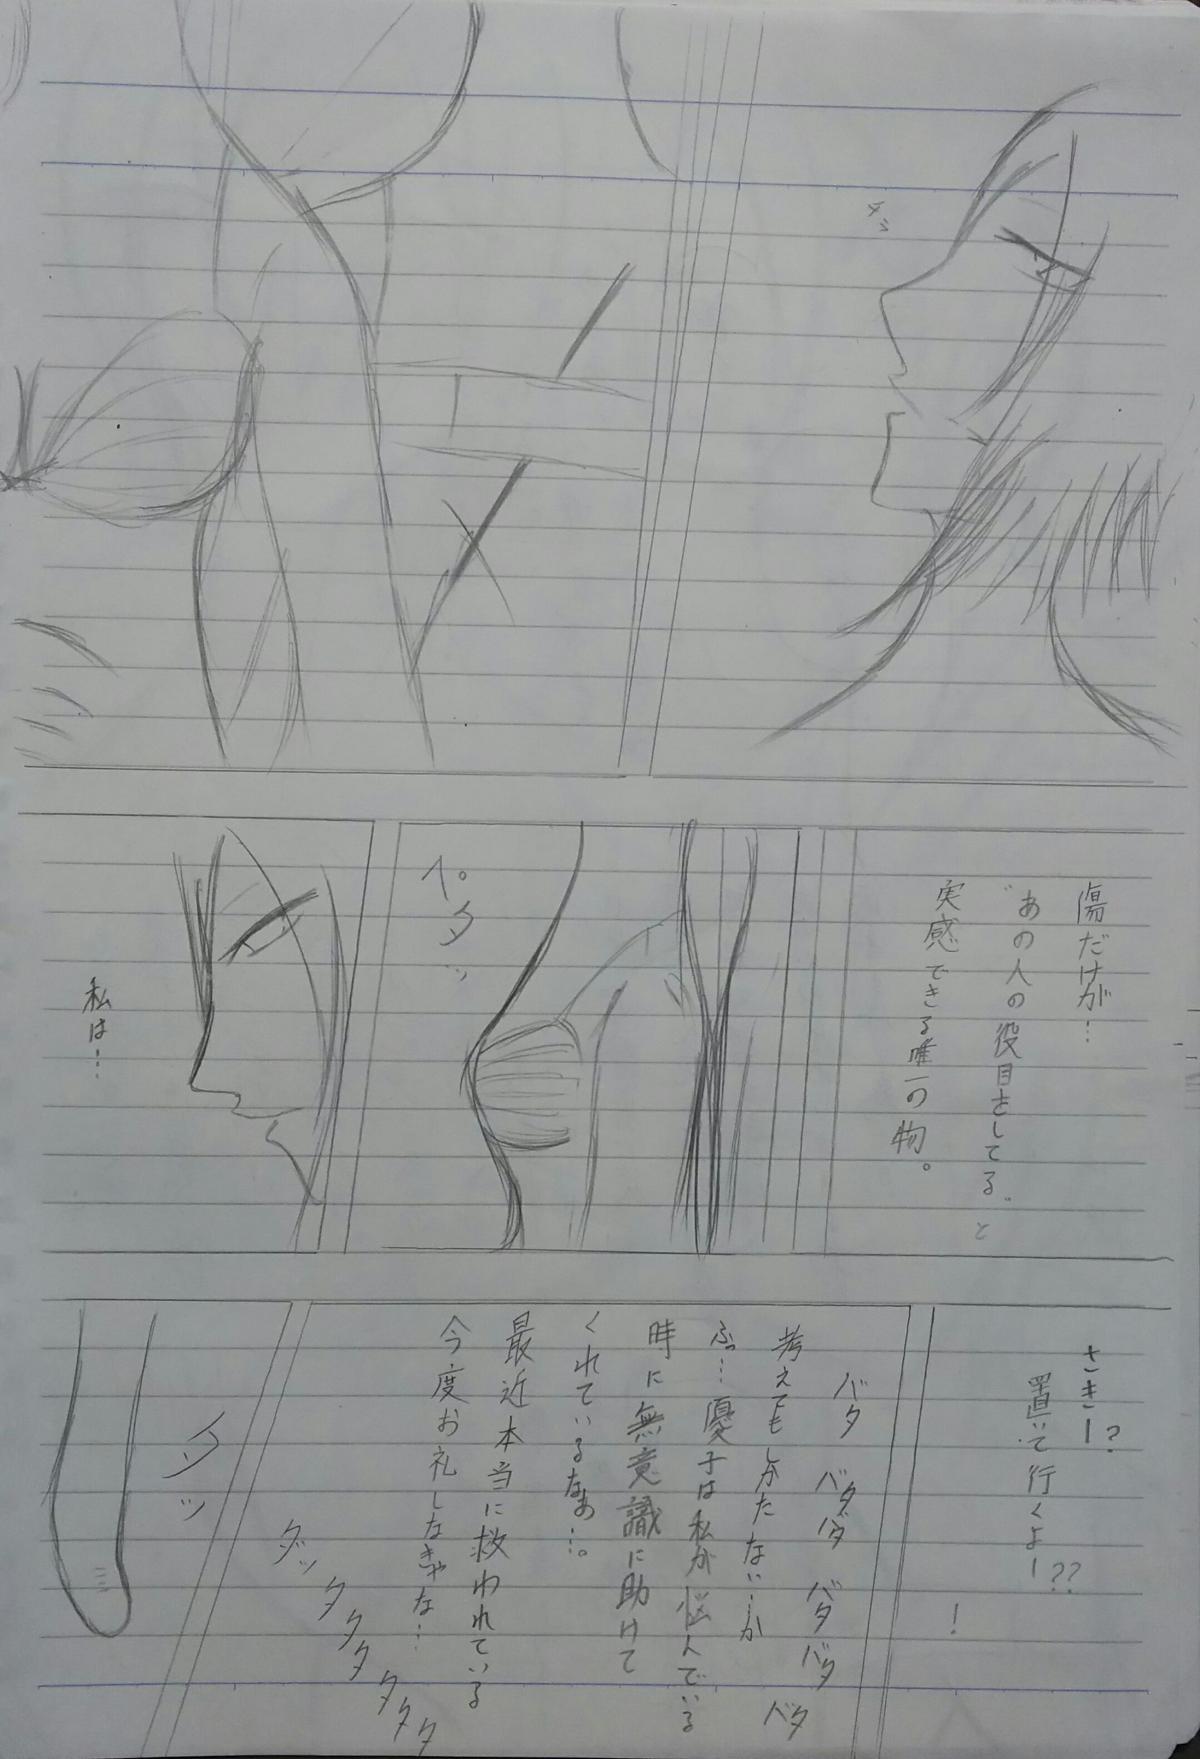 傷だけが…
"あの人の役目をしてる"と
実感できる唯一の物。
ペタッ
私は…
さきー?
置いて行くよー??
!
バタ
バタバタ
バタバタ
バタ
考えてもしかたない…か
ふっ…優子は私が悩んでいる
時に無意識に助けて
くれているなあ…。
最近本当に救われている
今度お礼しなきゃな…
ダッ
タタタ
タタタ